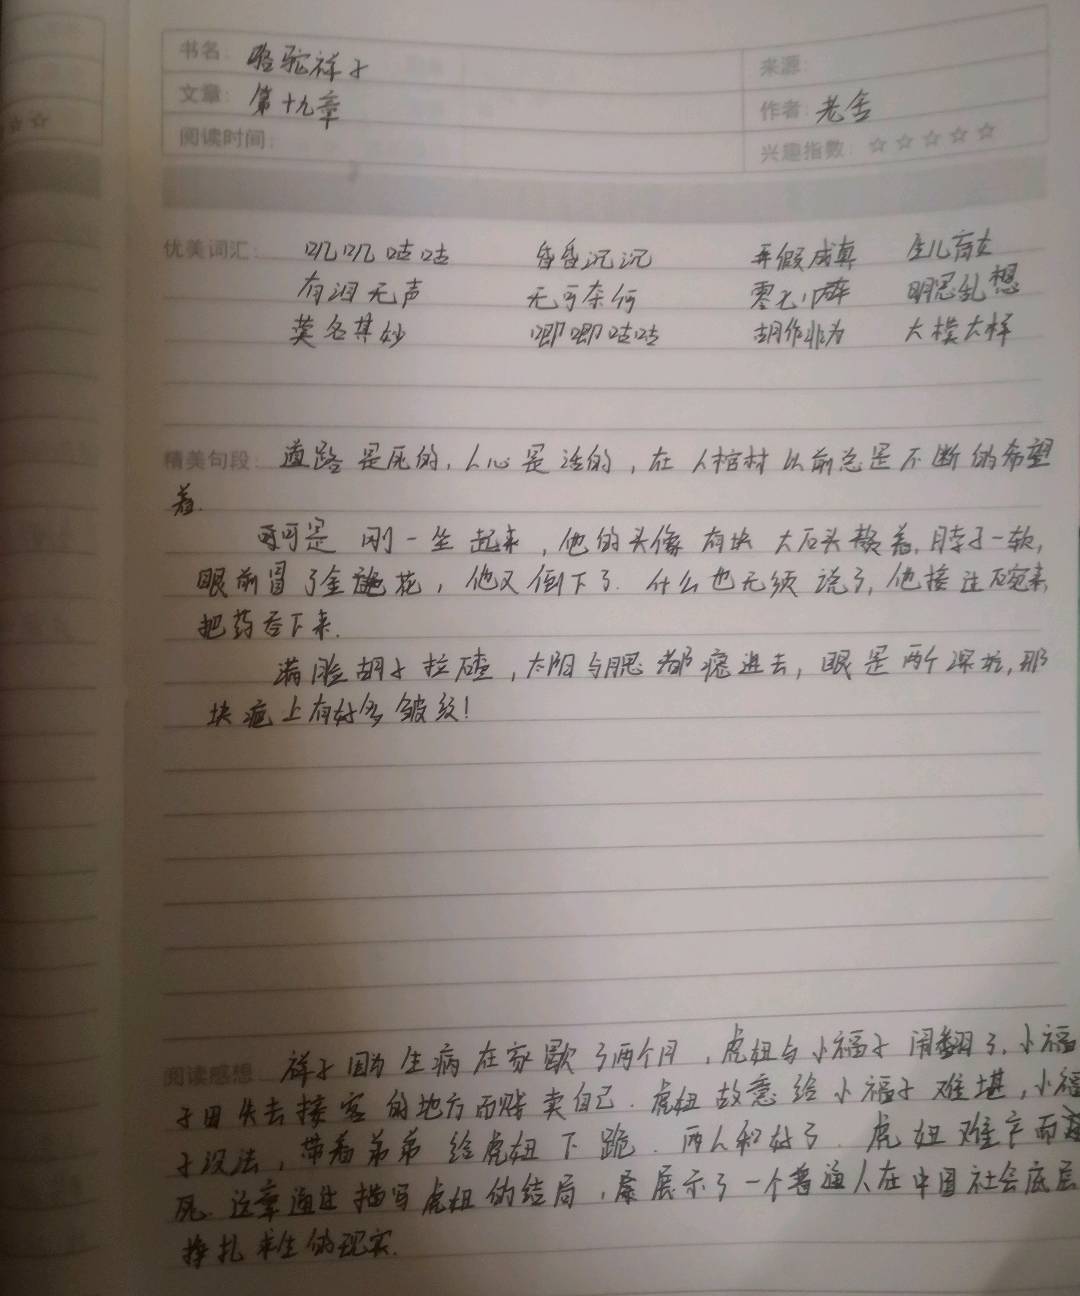 书名: 骆驼祥子 来源:
文章: 第十九章 作者: 老舍
阅读时间: 兴趣指数: ☆☆☆☆☆
优美词汇: 叽叽咕咕 昏昏沉沉 弄假成真 生儿育女
有泪无声 无可奈何 零七八碎 胡思乱想
莫名其妙 唧唧咕咕 胡作非为 大模大样
精美句段: 道路是死的,人心是活的,在入棺材以前总是不断的希望
着.
可可是 刚一坐起来,他的头像有块大石头赘着,脖子一软,
眼前冒了金花,他又倒下了.什么也无须说了,他接过碗来,
把药吞下来.
满脸胡子拉碴,太阳与腮都瘪进去,眼是两个深坑,那
块疤上有好多皱纹!
阅读感想: 祥子因为生病在家歇了两个月,虎妞与小福子闹翻了.小福
子因失去接客的地方而 卖自己.虎妞故意给小福子难堪,小福
子没法,带着弟弟给虎妞下跪.两人和好了.虎妞难产而
死.这章通过描写虎妞的结局,展示了一个普通人在中国社会底层
挣扎求生的现实.